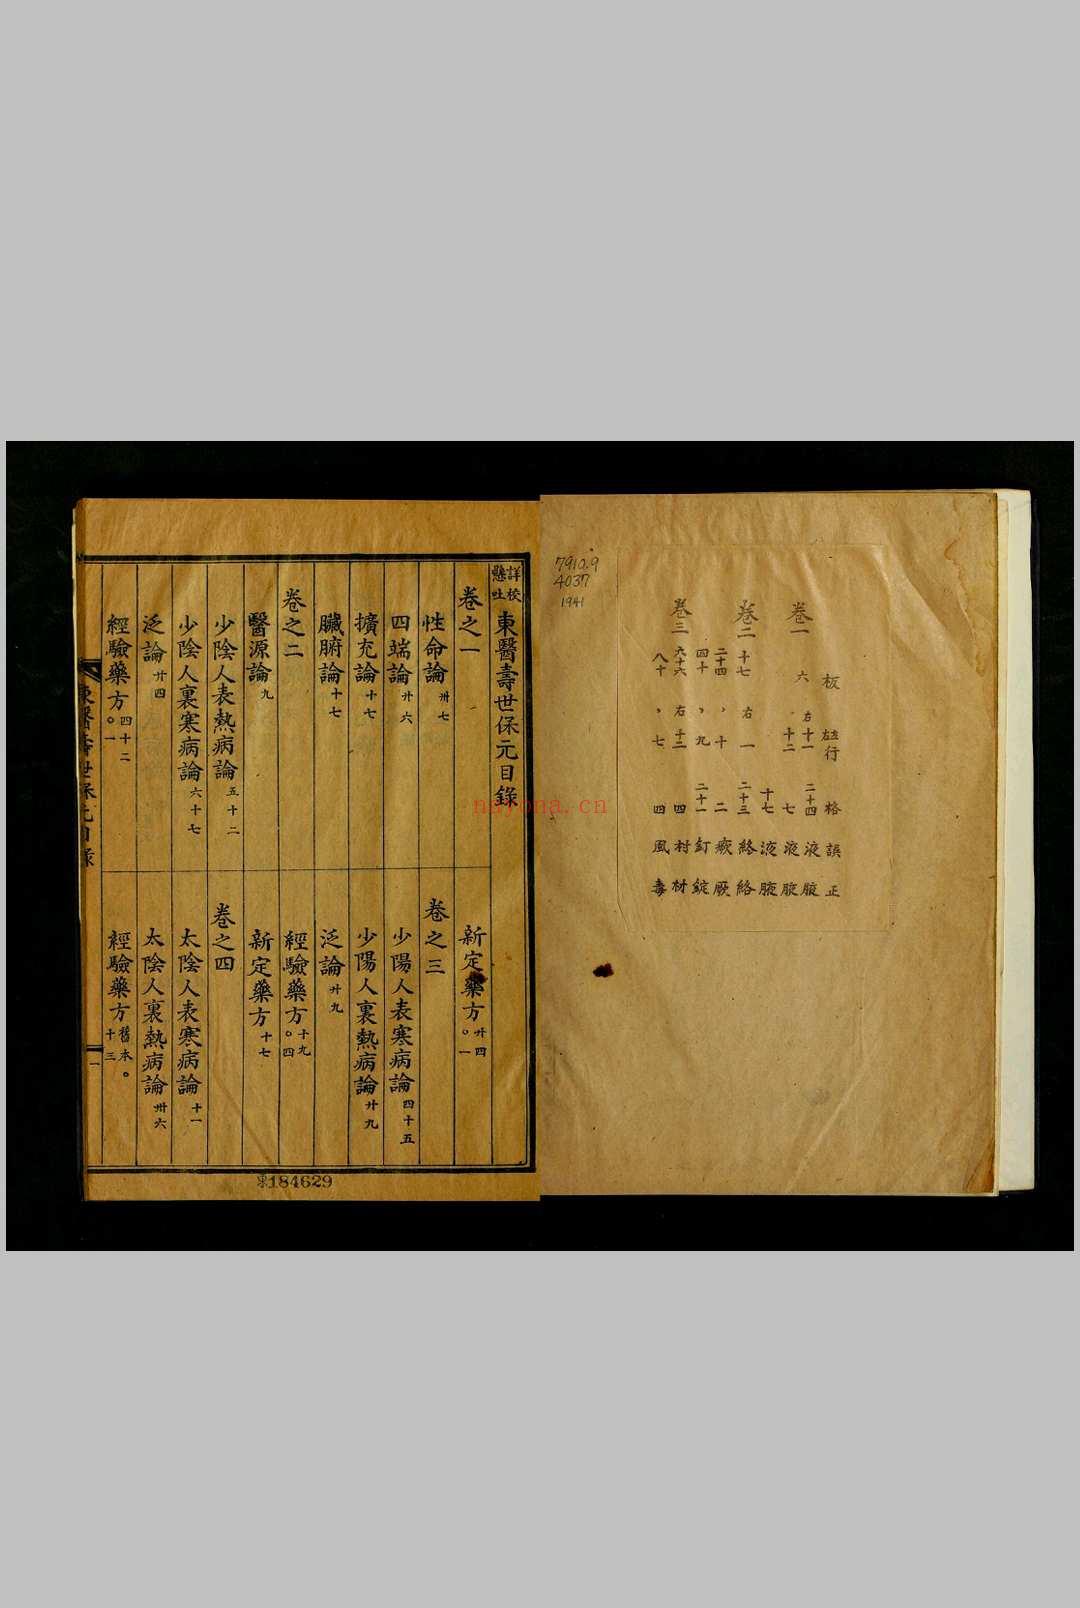 7910.9
4037
1941
板 左右行 格 誤 正
卷一 六 右十一 二十四 液 腋
十二 七 液 腋
十七 液 腋
卷二 十七 右 一 二十三 絡 絡
二十四 、 十 二 瘚 厥
四十 、 九 二十一 釘 錠
卷三 六十六 右 十三 四 村 材
八十 、 七 四 風 毒
詳校懸吐 東醫壽世保元目錄
卷之一
性命論 卅七
四端論 廾六
擴充論 十七
臟腑論 十七
卷之二
醫源論 九
少陰人表熱病論 五十二
少陰人裏寒病論 六十七
泛論 廾四
經驗藥方 四十二〇一
新定藥方 廾四〇一
卷之三
少陽人表寒病論 四十五
少陽人裏熱病論 廾九
泛論 廾九
經驗藥方 十九〇四
新定藥方 十七
卷之四
太陰人表寒病論 十一
太陰人裏熱病論 卅六
經驗藥方 舊本。十三
東醫壽世保元目錄
一
東184629
nayona.cn